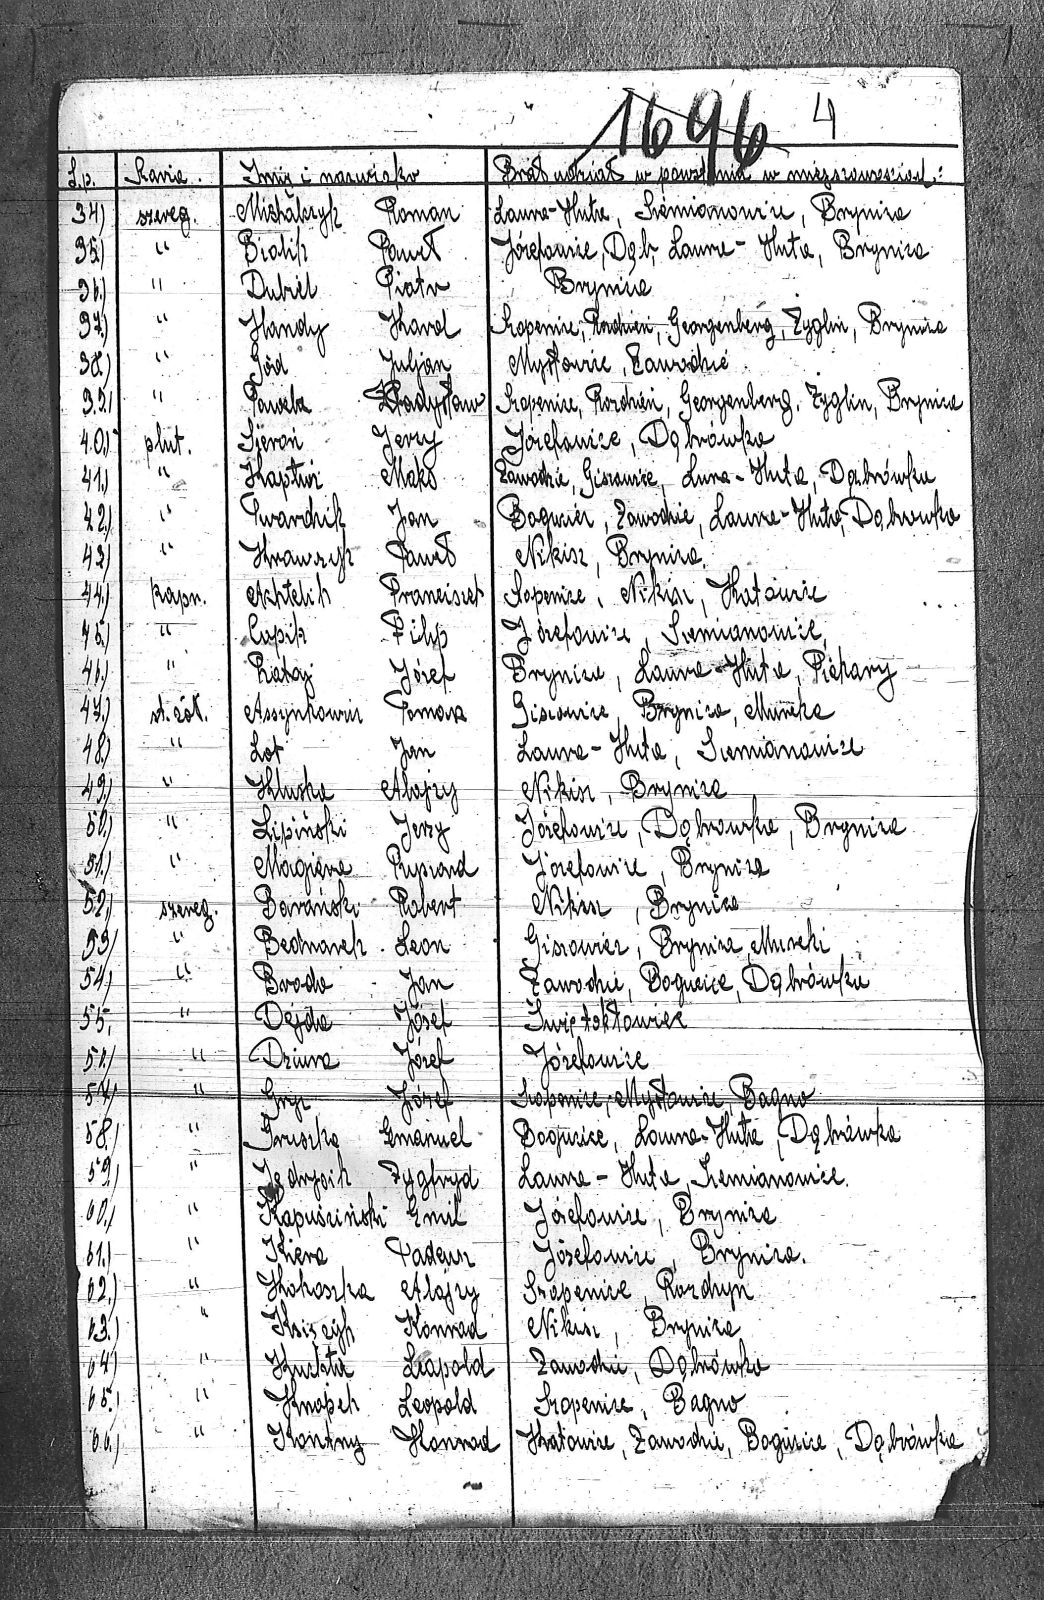 1696 4
L.p. Imię i nazwisko Brał udział w powstaniu w miejscowościach:
34) szereg. Roman Laura-Huta, Siemianowice, Brynica
35) " Bialik Paweł Józefowice, Dąb, Laura-Huta, Brynica
36) " Dubiel Piotr Brynica
37) " Handy Karol Szopenice, Rozdzień, Georgenberg, Żyglin, Brynica
38) " Juljan Mysłowice, Zawodzie
39) " Władysław Szopenice, Rozdzień, Georgenberg, Żyglin, Brynica
40) plut. Sieroń Jerzy Józefowice, Dąbrówka
41) " Zawodzie, Giszowice, Lura-Huta, Dąbrówka
42) " Twardzik Jan Bogucice, Zawodzie, Laura-Huta, Dąbrowka
43) " Krawczyk Paweł Nikisz, Brynica.
44) kapr. Achtelik Franciszek Sopenice, Nikisz, Katowice
45) " Cupik Filip Józefowice, Siemianowice,
46) " Rataj Józef Brynica, Laura-Huta, Piekary
47) Tomasz Giszowice, Brynica, Murcka
48) " Lot Jan Laura-Huta, Siemianowice
49) " Kluska Alojzy Nikisz, Brynica
50) " Lipiński Jerzy Józefowice, Dąbrowka, Brynica
51) " Magiera Ryszard Józefowice, Brynica
52) szereg. Barański Robert Nikisz, Brynica
53) " Bednarek Leon Giszowiec, Brynica, Murcki
54) " Broda Jan Zawodzie, Bogucice, Dąbrówka
55. " Dejda Józef Świętokłowice
56) " Dziura Józef Józefowice
57) " Gryc Józef Szopenice, Mysłowice, Bagno
58.) " Gruszka Emanuel Bogucice, Laura-Huta, Dąbrówka
59) " Jędrysik Zygfryd Laura-Huta, Siemianowice.
60.) " Kapuściński Emil Józefowice, Brynica
61.) " Kiera Tadeusz Józefowice, Brynica.
62.) " Kokoszka Alojzy Szopenice, Rozdzyn
63.) " Konrad Nikisz, Brynica
64) " Leopold Zawodzie, Dąbrówka
65.) " Knopek Leopold Szopenice, Bagno
66.) " Kontny Konrad Katowice, Zawodzie, Bogucice, Dąbrówka